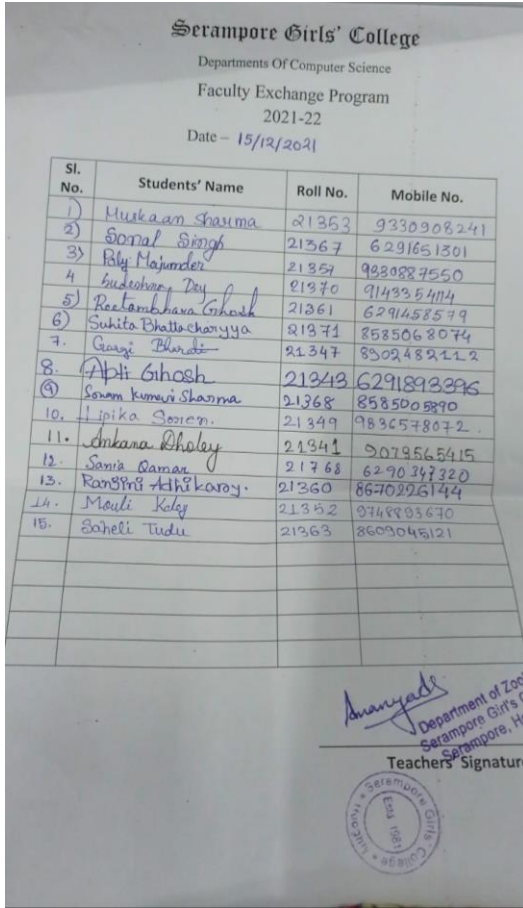 Serampore Girls' College
Departments Of Computer Science
Faculty Exchange Program
2021-22
Date – 15/12/2021
Sl. No. Students' Name Roll No. Mobile No.
1) Muskaan Sharma 21353 9330908241
2) Sonal Singh 21367 6291651301
3) Poly Majumder 21357 9330887550
4 Sudeshna Dey 21370 9143354114
5) Reetambhara Ghosh 21361 6291458579
6) Suhita Bhattacharyya 21371 8585068074
7. Gargi Bharati 21347 8902482112
8. Arpli Ghosh 21343 6291893396
9) Sonam Kumari Sharma 21368 8585005890
10. Lipika Soren. 21349 9836578072.
11. Ankana Dholey 21341 9079565415
12. Sania Qamar 21768 6290347320
13. Ranjini Adhikary. 21360 8670226144
14. Mouli Koley 21352 9748893670
15. Saheli Tudu 21363 8609045121
Department of
Serampore Girl's
Serampore,
Teachers' Signature
Serampore Girls' College
Estd 1981